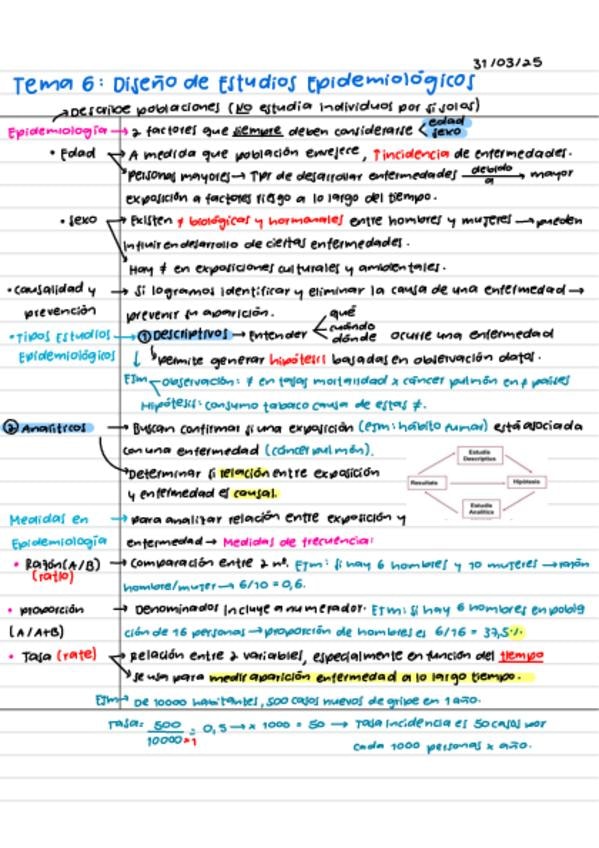 31/03/25
Tema 6: Diseño de Estudios Epidemiológicos
→ Describe poblaciones (NO estudia individuos por sí solas)
Epidemiología → 2 factores que siempre deben considerarse < edad
sexo
• Edad → A medida que población envejece, ↑incidencia de enfermedades.
→ Personas mayores → de desarrollar enfermedades debido a → mayor
exposición a factores riesgo a lo largo del tiempo.
• Sexo → Existen ≠ biológicas y hormonales entre hombres y mujeres → pueden
influir en desarrollo de ciertas enfermedades.
Hay ≠ en exposiciones culturales y ambientales.
• Causalidad y → Si logramos identificar y eliminar la causa de una enfermedad →
prevención prevenir su aparición.
• Tipos Estudios → ① Descriptivos → Entender < qué
cuándo
dónde ocurre una enfermedad
Epidemiológicos ↓ ↳ permite generar hipótesis basadas en observación datos.
Ejm observación: ≠ en tasas mortalidad x cáncer pulmón en ≠ países
Hipótesis: consumo tabaco causa de estas ≠.
② Analíticos → Buscan confirmar si una exposición (ejm: hábito fumar) está asociada
con una enfermedad (cáncer pulmón).
Determinar si relación entre exposición
y enfermedad es causal.
Estudio Descriptivo
Resultado
Hipótesis
Estudio Analítico
Medidas en → para analizar relación entre exposición y
Epidemiología enfermedad → Medidas de frecuencia:
• Razón (A/B) → Comparación entre 2 nº. Ejm: si hay 6 hombres y 10 mujeres → razón
(ratio) hombre/mujer → 6/10 = 0,6.
• proporción → Denominados incluye a numerador. Ejm: si hay 6 hombres en pobla
(A/A+B) ción de 16 personas → proporción de hombres es 6/16 = 37,5%
• Tasa (rate) → Relación entre 2 variables, especialmente en función del tiempo
→ se usa para medir aparición enfermedad a lo largo tiempo.
Ejm → De 10000 habitantes, 500 casos nuevos de gripe en 1 año.
Tasa = 500 / 10000*1 = 0,5 → x 1000 = 50 → Tasa incidencia es 50 casos por
cada 1000 personas x año.